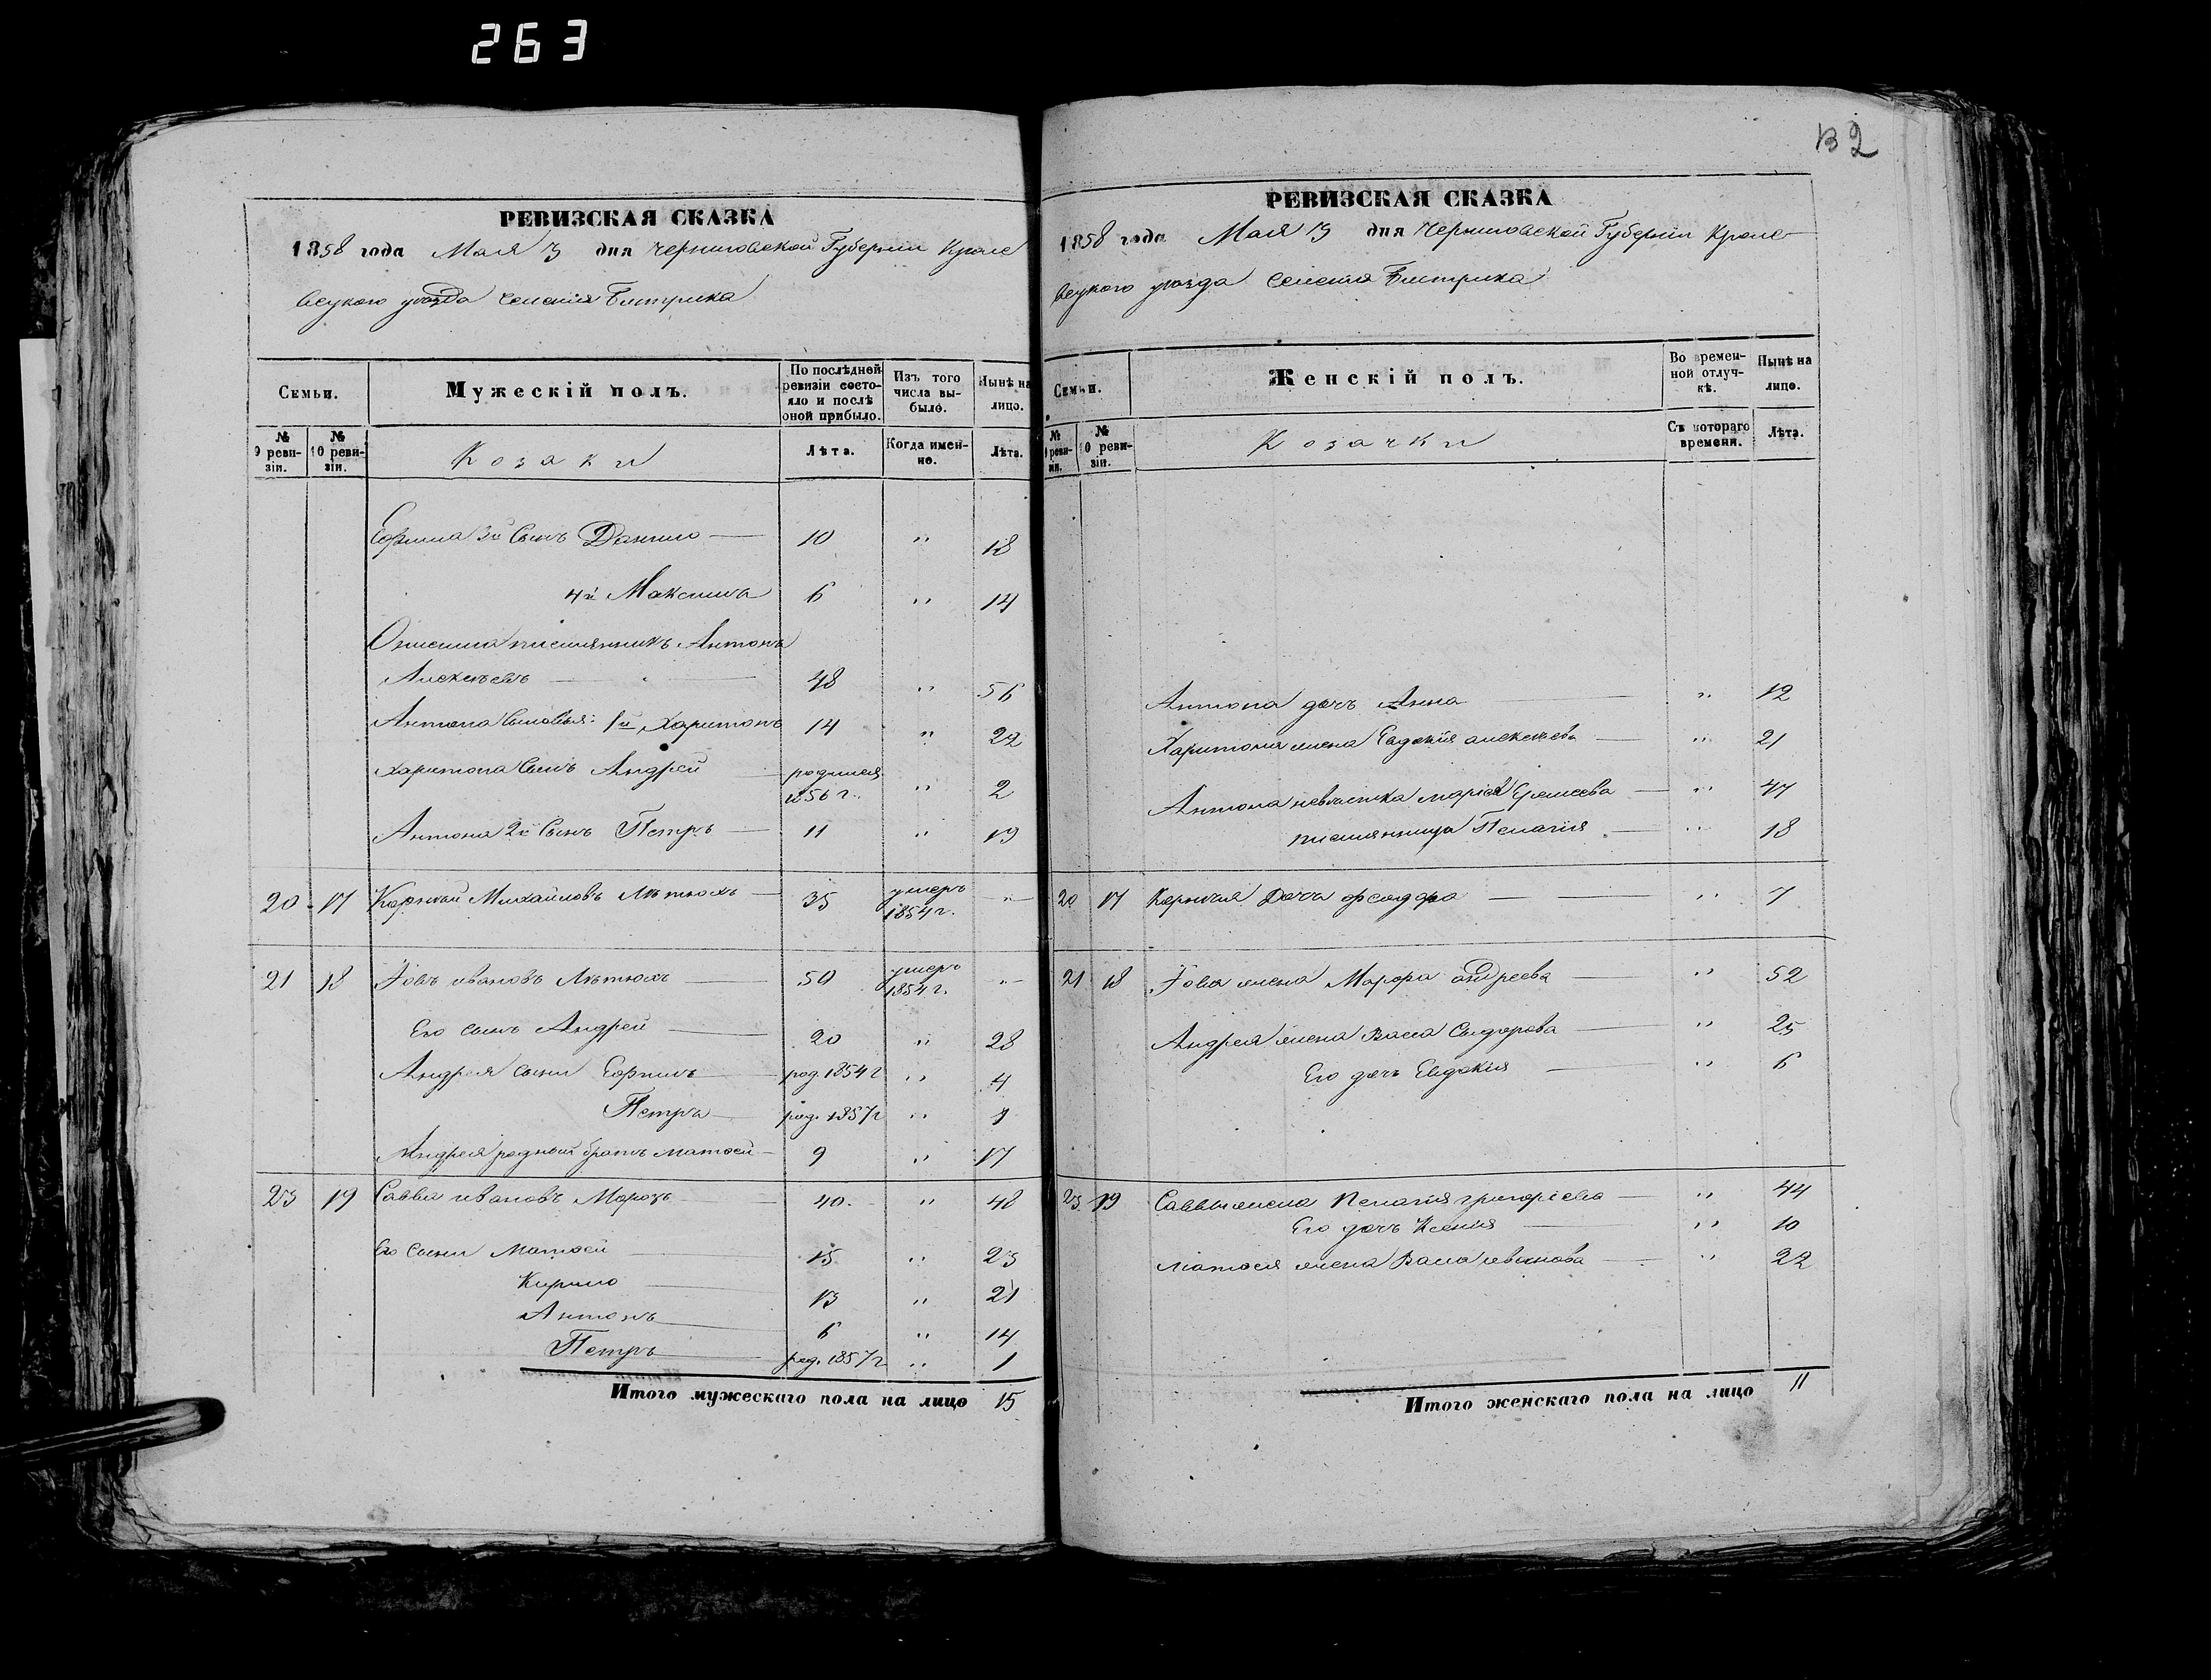 263
132
РЕВИЗСКАЯ СКАЗКА
1858 года Мая 13 дня Черниговской Губерніи Кроле
вецкого уѣзда селенія Бистрика
Семьи.
Мужескій полъ.
По послѣдней ревизіи состояло и послѣ оной прибыло.
Изъ того числа выбыло.
Нынѣ на лицо.
№ 9 ревизіи.
№ 10 ревизіи.
Козаки
Лѣта.
Когда именно.
Лѣта.
Ефима 3й Сынъ Данило — 10 " 18
4й Максимъ 6 " 14
Онисима племянникъ Антонъ
Алексѣевъ — 48 " 56
Антона Сыновья: 1й Харитонъ 14 " 22
Харитона Сынъ Андрей родился 1856 г. " 2
Антона 2й Сынъ Петръ — 11 " 19
20 17 Корнѣй Михайловъ — 35 умеръ 1854 г. "
21 18 Іовъ ивановъ — 50 умеръ 1854 г. "
Его сынъ Андрей — 20 " 28
Андрея сыни Ефимъ — род. 1854 г " 4
Петръ — род. 1857 г " 1
Андрея родный братъ матвей — 9 " 17
23 19 Савва ивановъ Морозъ — 40. " 48
Его Сыни Матвей — 15 " 23
Кирило — 13 " 21
Антонъ — 6 " 14
Петръ — род. 1857 г " 1
Итого мужескаго пола на лицо 15
РЕВИЗСКАЯ СКАЗКА
1858 года Мая 13 дня Черниговской Губерніи Кроле-
вецкого уѣзда Селенія Бистрика
Семьи.
Женскій полъ.
Во временной отлучкѣ.
Нынѣ на лицо.
№ 9 ревизіи.
№ 10 ревизіи.
Козачки
Съ котораго времени.
Лѣта.
Антона дочь Анна — " 12
Харитона жена Евдокія алексѣева — " 21
Антона невѣстка марія Еремеева — " 47
племянница Пелагія — " 18
20 17 Корнѣя Дочь — " 7
21 18 Іова жена Марфа андреева — " 52
Андрея жена Васа Сидорова — " 25
Его дочь Евдокія — " 6
23 19 Саввы жена Пелагія григоріева — " 44
Его дочь Ксенія — " 10
матвея жена Васа иванова — " 22
Итого женскаго пола на лицо 11